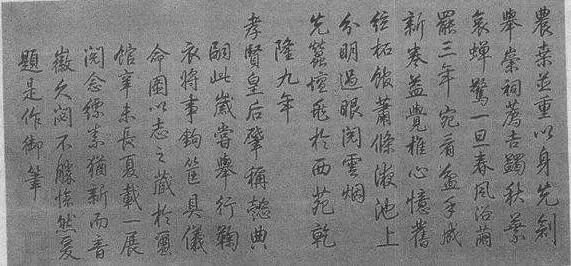 農桒並重以身先創
舉崇祠薦吉蠲秋葉
哀蟬驚一旦春風浴繭
罷三年宛看盆手成
新卷益覺椎心憶舊
絃柘館蕭條液池上
分明過眼閱雲烟
先蠶壇於西苑乾
隆九年
孝賢皇后肇稱懿典
嗣此歲嘗舉行鞠
衣將事鉤筐具儀
命圖以志之藏於蠶
館辛未長夏載一展
閱念縹素猶新而音
徽久閟不勝悵然爰
題是作御筆